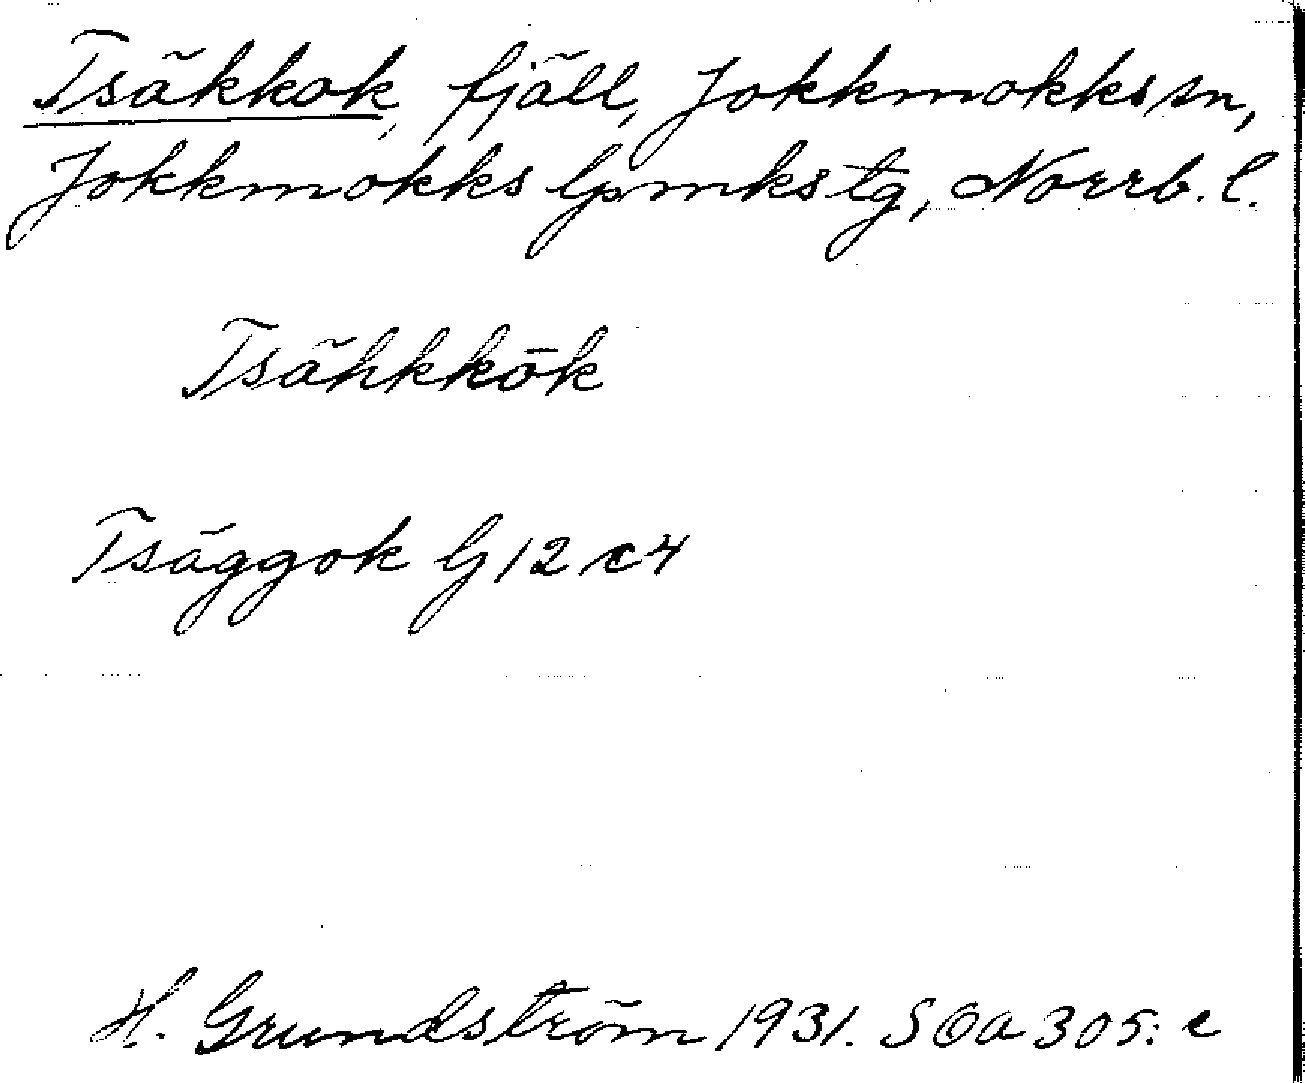 Tsäkkok, fjäll, Jokkmokks sn,
Jokkmokks lpmkstg, Norrb. l.
Tsähkkōk
Tsäggok G 12 c 4
H. Grundström 1931. SOA 305: c